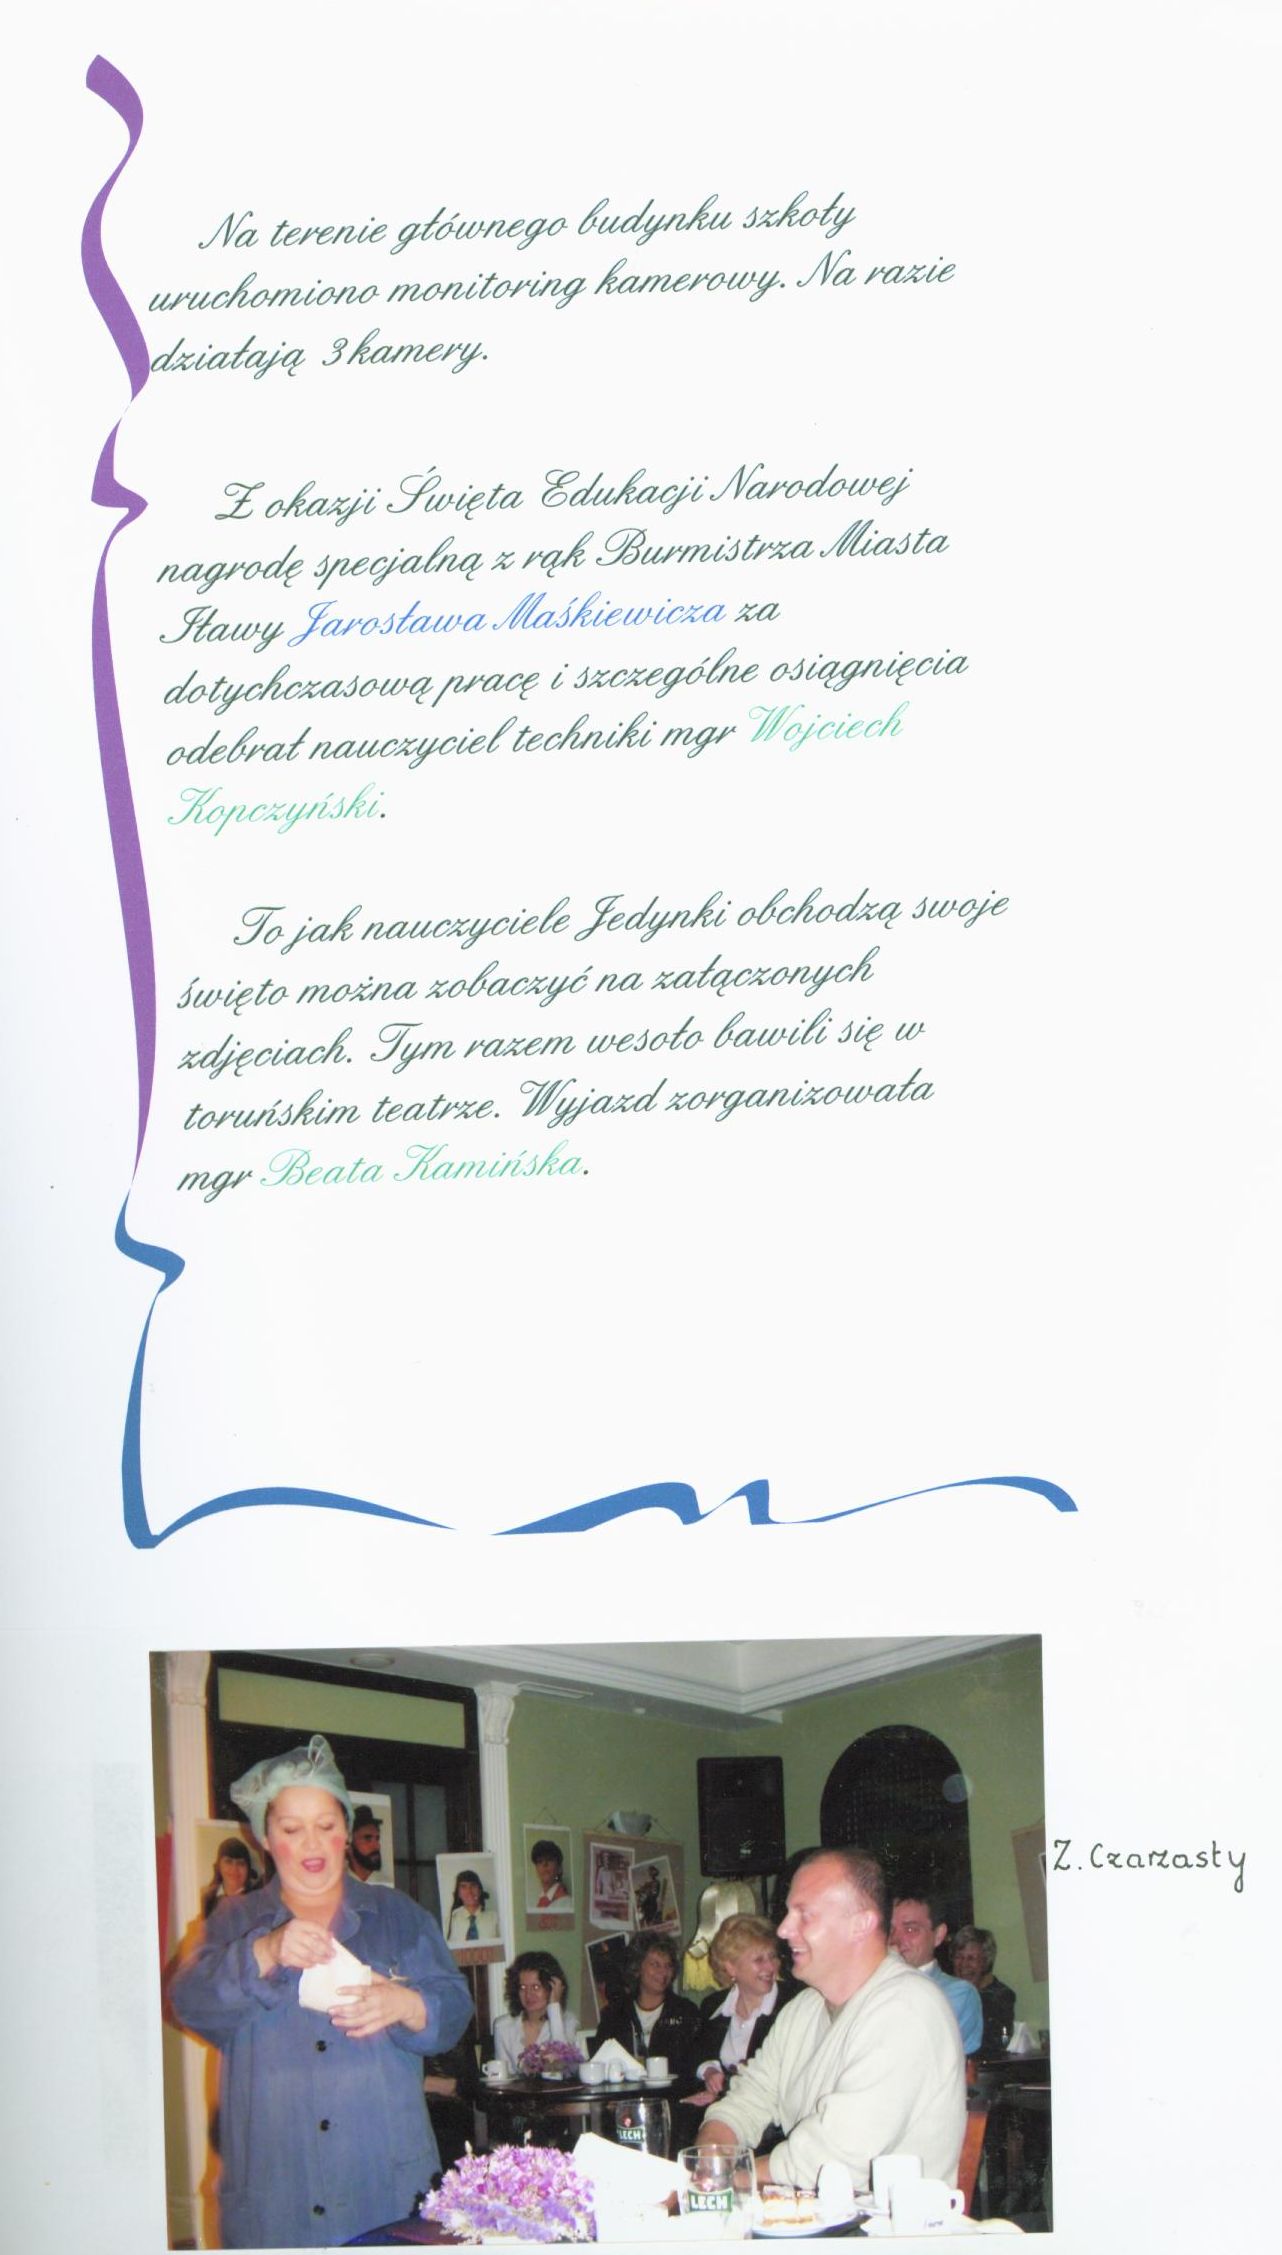 Na terenie głównego budynku szkoły
uruchomiono monitoring kamerowy. Na razie
działają 3 kamery.
Z okazji Święta Edukacji Narodowej
nagrodę specjalną z rąk Burmistrza Miasta
Iławy Jarosława Maśkiewicza za
dotychczasową pracę i szczególne osiągnięcia
odebrał nauczyciel techniki mgr Wojciech
Kopczyński.
To jak nauczyciele Jedynki obchodzą swoje
święto można zobaczyć na załączonych
zdjęciach. Tym razem wesoło bawili się w
toruńskim teatrze. Wyjazd zorganizowała
mgr Beata Kamińska.
Z. Czarzasty
LECH
LECH